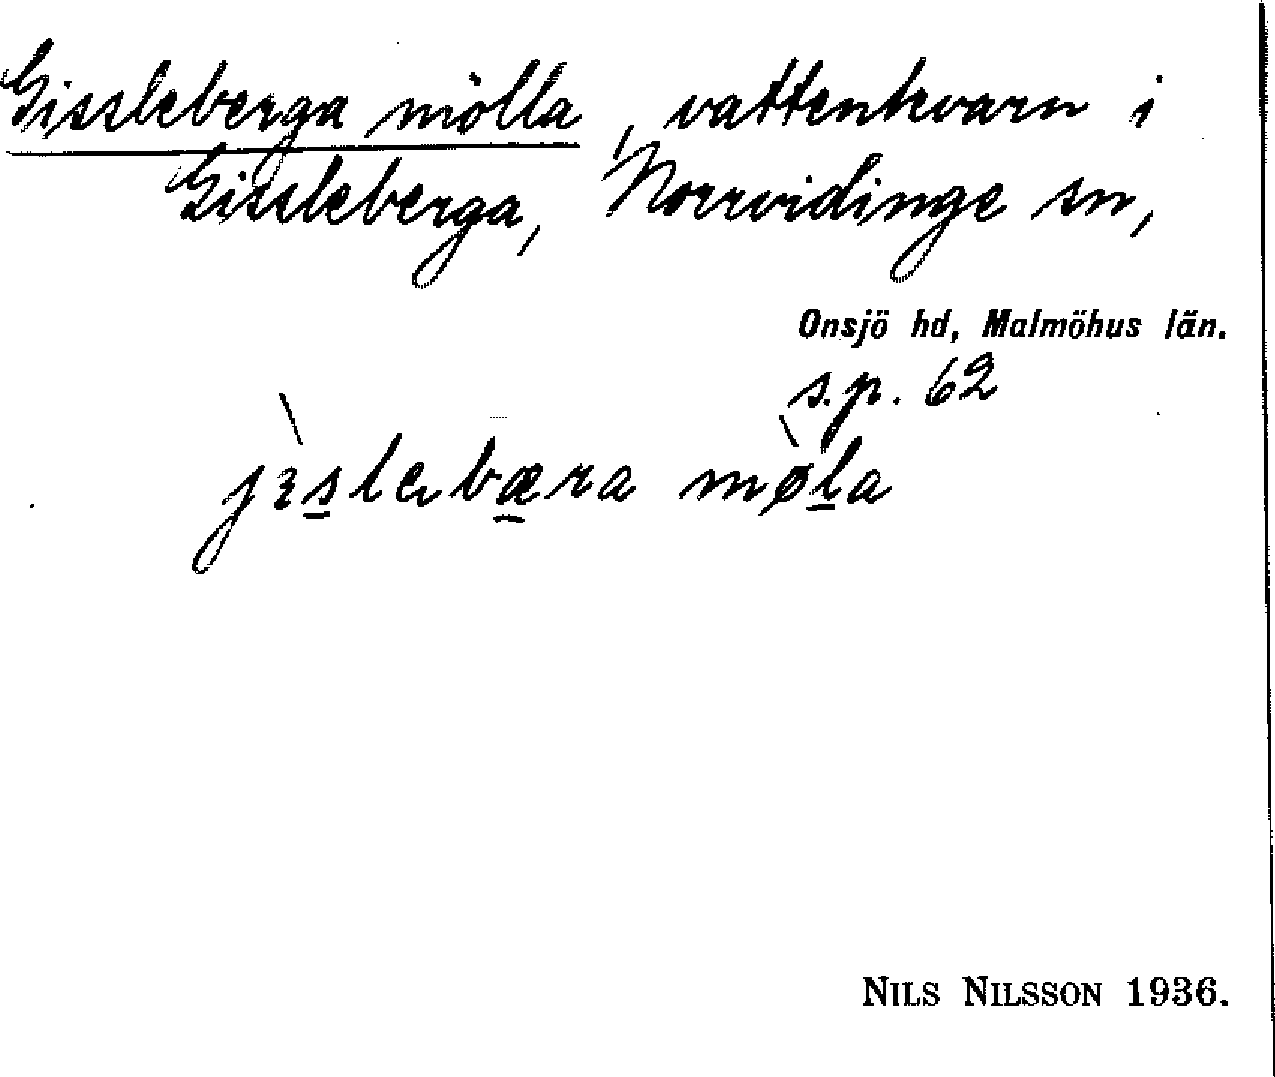 Gissleberga mölla, vattenkvarn i
Gissleberga, Norrvidinge sn,
Onsjö hd, Malmöhus län.
s.p. 62
møla
NILS NILSSON 1936.